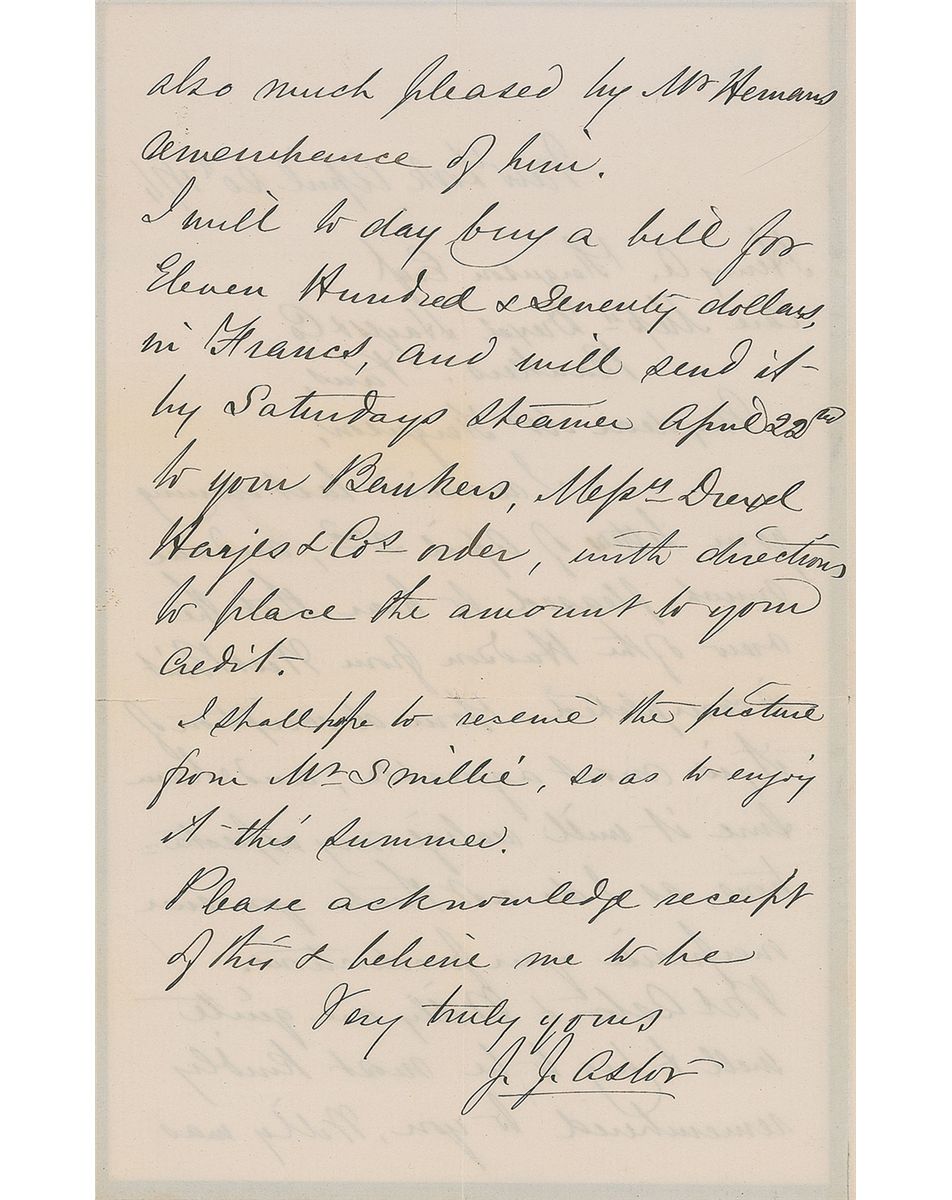 also much pleased by Mr Hemans
remembrance of him.
I will to day buy a bill for
Eleven Hundred & Seventy dollars,
in Francs, and will send it
by Saturdays Steamer April 22nd
to your Bankers, Messrs Drexel
Harjes & Cos order, with directions
to place the amount to your
credit.
I shall hope to receive the picture
from Mr Smillie, so as to enjoy
it this summer.
Please acknowledge receipt
of this & believe me to be
Very truly yours
J. J. Astor